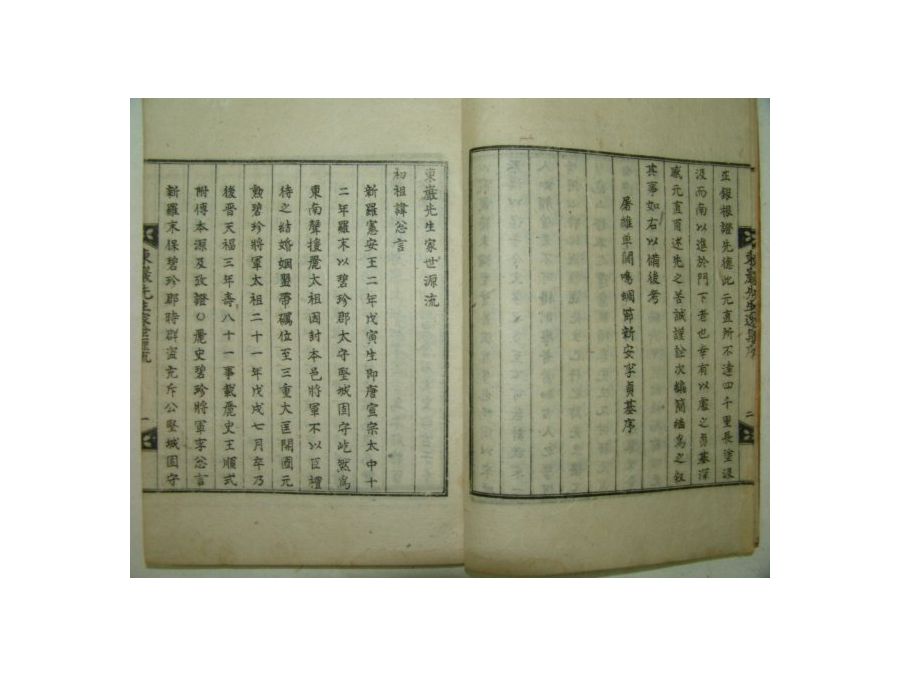 生銀根證先德此元直所不達四千里長塗汲
汲而南以進於門下者也幸有以處之勇基深
感元直甫述先之苦誠謹詮次編簡繕寫之敍
其事如右以備後考
屠維單閼鳴蜩節新安李貞基序
東巖先生家世源流
初祖諱忩言
新羅憲安王二年戊寅生即唐宣宗太中十
二年羅末以碧珍郡太守堅城固守屹然爲
東南聲援麗太祖因封本邑將軍不以臣禮
待之結婚姻盟帶礪位至三重大匡開國元
勲碧珍將軍太祖二十一年戊戌七月卒乃
後晋天福三年壽八十一事載麗史王順式
附傳本源及攷證○麗史碧珍將軍李忩言
新羅末保碧珍郡時群盜充斥公堅城固守
東巖先生家世源流
一
二